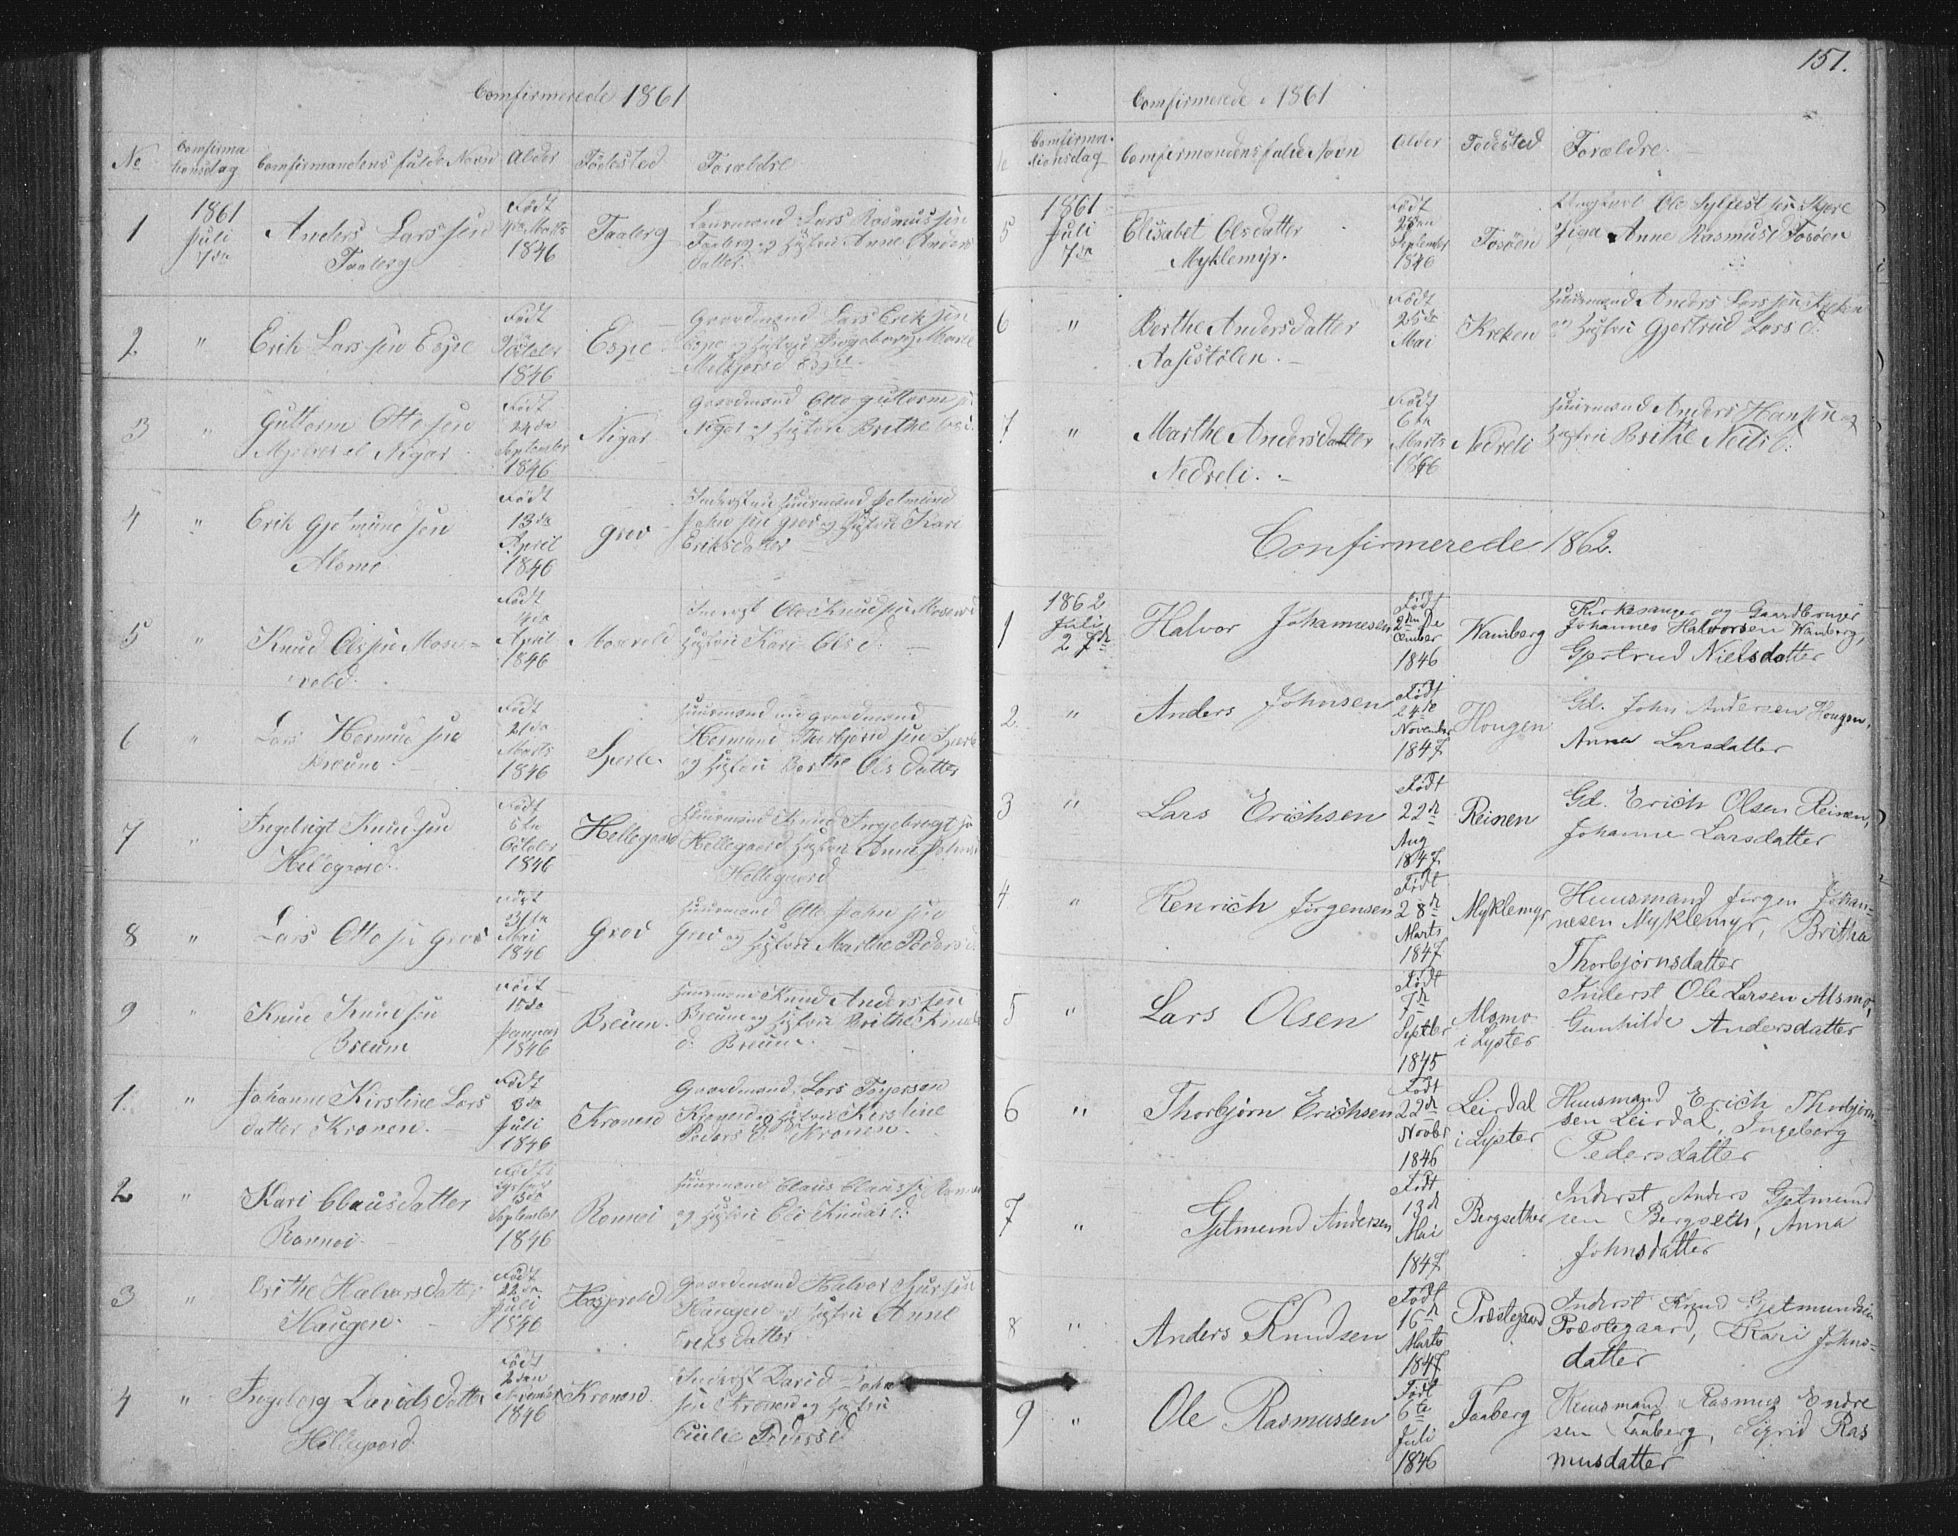 Comfirmerede 1861
No
Comfirma
tionsdag
Comfirmandens fulde Navn
Alder
Fødested
Forældre
1
1861
Juli
7de
Anders Larssen
Taaberg
Født
Marts
1846
Taaberg
Lars Rasmussen
Taaberg og Hustru Anne Anders
datter
2
"
Erik Larssen Espe
Født
October
1846
Espe
Gaardmand Lars Eriksen
Espe og Hustru Ingeborg Marie
Espe
3
"
Guttorm Ottosen
Nigar
Født
24de
September
1846
Nigar
Gaardmand Otto Guttorms
Nigar og Hustru Brithe
4
"
Erik Gjetmundsen
Alsmo
Født
13de
April
1846
Grov
Huusmand Gjetmund
Johnsen Grov og Hustru Kari
Eriksdatter
5
"
Knud Olssen Mose=
vold
Født
April
1846
Mosevold
Inderst Ole Knudsen Mosevold
Hustru Kari Olsd.
6
"
Lars Hermundsen
Kreune
Født
21de
Marts
1846
Sperle
Huusmand nu Gaardmand
Hermund Thorbjørnsen Sperle
og Hustru Berthe Olsdatter
7
"
Ingebrigt Knudsen
Hellegaard
Født
5te
October
1846
Hellegaard
Huusmand Knud Ingebrigts
Hellegaard Hustru Anne
Hellegaard
8
"
Lars Ottosen Grov
Født
31te
Mai
1846
Grov
Huusmand Otto Johnsen
Grov og Hustru Marthe Pedersd
9
"
Knud Knudsen
Breum
Født
15de
Januar
1846
Breum
Huusmand Knud Anderssen
Breum og Hustru Brithe Knuds
d. Breum.
1.
"
Johanne Kirstine Lars
datter Kronen.
Født
8de
Juli
1846
Kronen
Gaardmand Lars
Kronen og Hustru Kirstine
Peders d. Kronen.
2
"
Kari Clausdatter
Romnei
Født
September
1846
Romnei
Huusmand Claus Claussen
og Hustru Eli Knudsd.
3
"
Brithe Halvorsdatter
Haugen.
Født
22de
Juli
1846
Gaardmand Halvor
Haugen og Hustru Anne
Eriksdatter
4
"
Ingeborg Davidsdatter
Hellegaard
Født
2den
November
1846
Kronen
Inderst David John
sen Kronen og Hustru
Cicilie Pedersd
151.
Comfirmerede 1861
Comfirma-
tionsdag
Comfirmandens fulde Navn
Alder
Fødested
Forældre.
5
1861
Juli
7de
Elisabet Olsdatter
Myklemyr.
Født
28den
September
1846
Fosøen
Ungkarl Ole Sylfestsen
Piga Anne Rasmusd Fosøen
6
"
Berthe Andersdatter
Aasestølen.
Født
25de
Mai
Kreken
Huusmand Anders Larssen Kreken
og Hustru Gjertrud Larsd.
7
"
Marthe Andersdatter
Nedreli.
Født
6te
Marts
1846
Nedreli
Huusmand Anders Hansen og
Hustru Brithe Neilsd.
Confirmerede 1862.
1
1862
Juli
27de
Halvor Johannesen
Født
2den De
cember
1846
Wamberg
Kirkesanger og Gaardbruger
Johannes Halvorsen Wamberg,
Gjertrud Nielsdatter
2.
"
Anders Johnsen
Født
24de
November
1847
Hougen
Gd. John Andersen Hougen,
Anna Larsdatter
3
"
Lars Erichsen
Født
22de
Aug
1847
Reinen
Gd. Erich Olsen Reinen,
Johanne Larsdatter
4
"
Henrich Jørgensen
Født
28de
Marts
1847
Myklemyr
Huusmand Jørgen Johan-
nesen Myklemyr, Britha
Thorbjørnsdatter
5
"
Lars Olsen
Født
7de
Septbr
1845
Alsmo
i Lyster
Inderst Ole Larsen Alsmo,
Gunhilde Andersdatter
6
"
Thorbjørn Erichsen
Født
22de
Novbr
1846
Leirdal
i Lyster
Huusmand Erich Thorbjørn
sen Leirdal, Ingeborg
Pedersdatter
7
"
Gjetmund Andersen
Født
13de
Mai
1847
Bergsethei
Inderst Anders Gjetmund
sen Bergseth, Anna
Johnsdatter
8
"
Anders Knudsen
Født
16de
Marts
1847
Præstegaard
Inderst Knud Gjetmundsen
Præstegaard, Kari Johns-
datter
9
"
Ole Rasmussen
Født
6te
Juli
1846
Faaberg
Huusmand Rasmus Endre
sen Faaberg, Sigrid Ras
musdatter